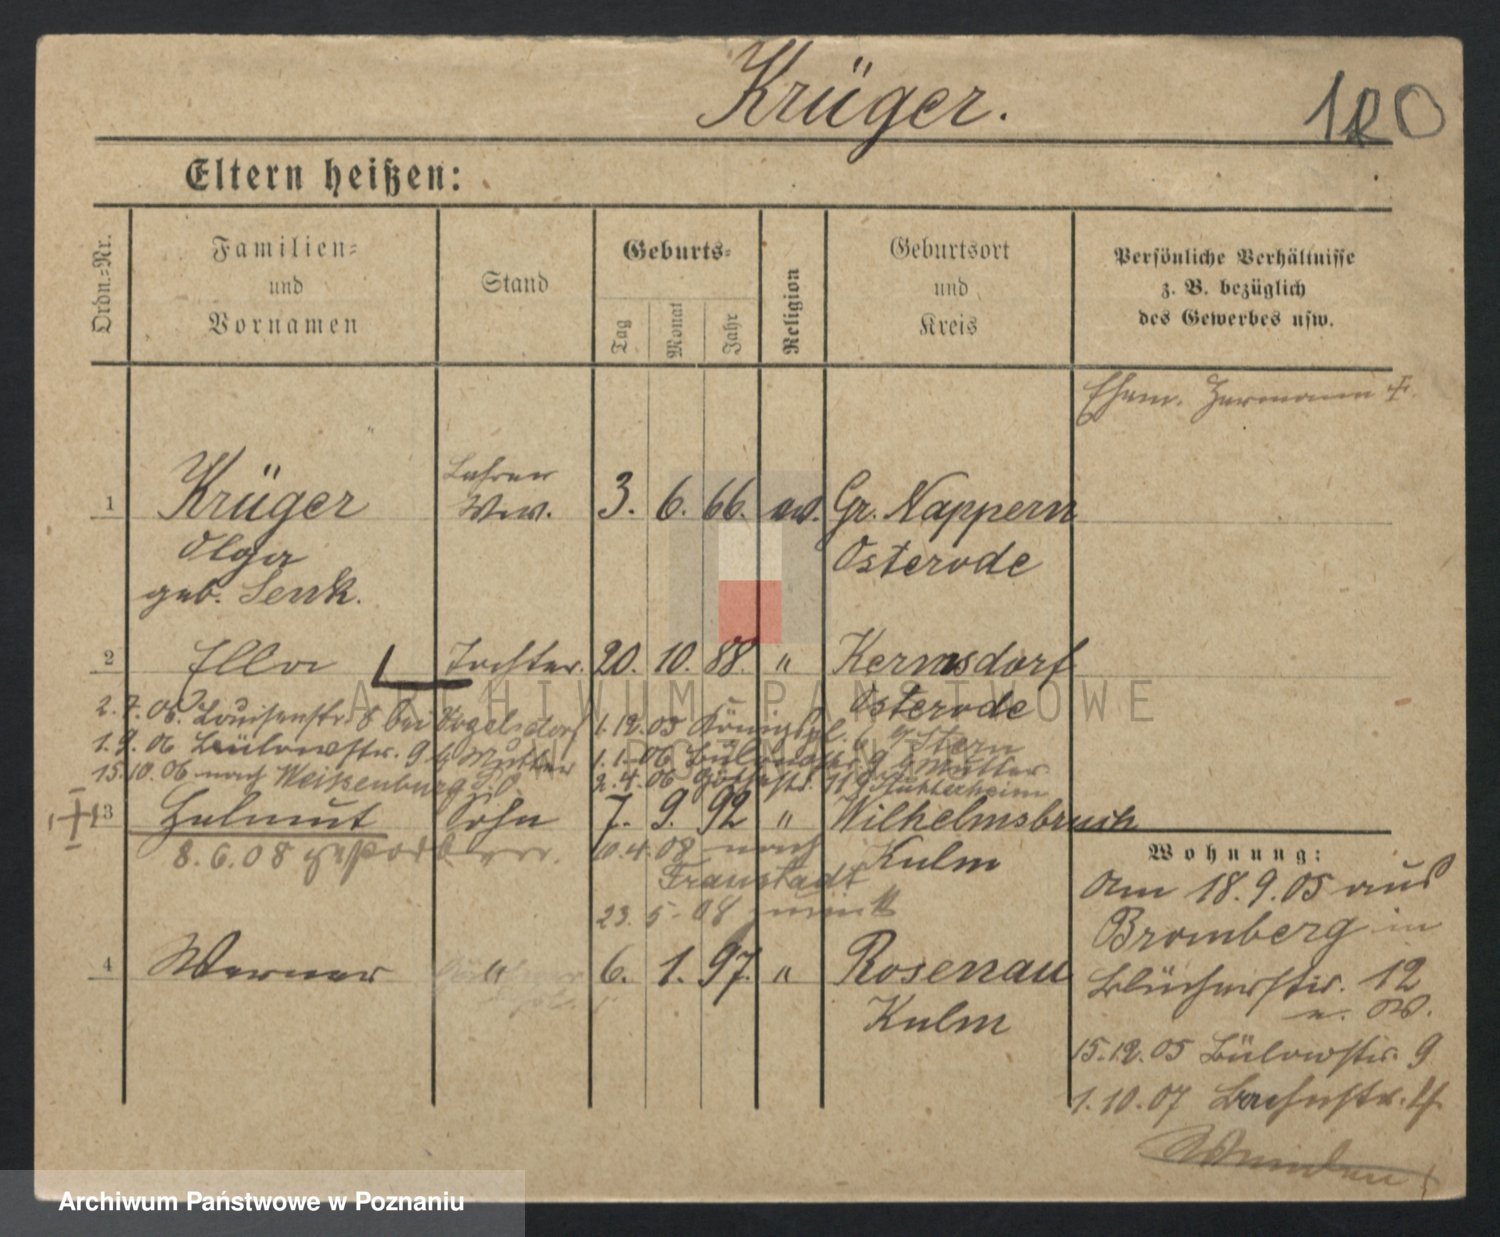 Krüger.
120
Eltern heißen:
Ordn.-Nr.
Familien-
und
Vornamen
Stand
Geburts-
Tag
Monat
Jahr
Religion
Geburtsort
und
Kreis
Persönliche Verhältnisse
z. B. bezüglich
des Gewerbes usw.
Ehem. Hermann +.
1 Krüger Lehrer 3. 6. 66. ev. Gr. Nappern
Wwe.
Olga Osterode
geb. Senk.
2 Ella Tochter. 20. 10. 88. " Kernsdorf
Osterode
2.7.06. Louisenstr. 8 bei Vogelsdorf 1.12.05 Königspl. 6 b/ Stern
1.9.06 Bülowstr. 9 b/ Mutter 1.1.06 Bülowstr 9 b/ Mutter
15.10.06 nach Weissenburg 2.4.06
3 Helmut Sohn 7. 9. 92 " Wilhelmsbruch
Kulm
8.6.08 10.4.08 nach
Fraustadt
23. 5. 08 zurück
4 Werner " 6. 1. 97. " Rosenau
Kulm
Wohnung:
Am 18.9.05 aus
Bromberg in
Blücherstr. 12
15.12.05 Bülowstr. 9
1.10.07 Bachstr. 4
ARCHIWUM PAŃSTWOWE
W POZNANIU
Archiwum Państwowe w Poznaniu